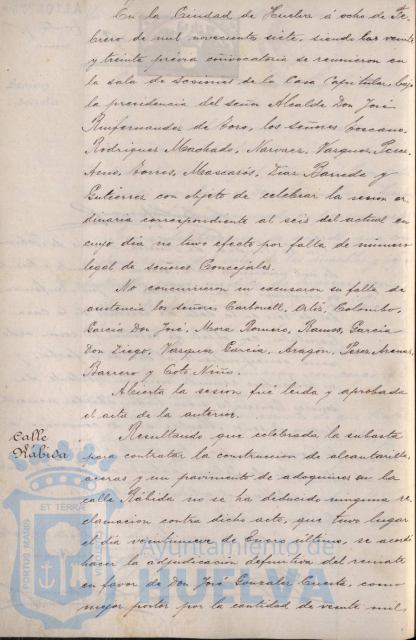 En la Ciudad de Huelva á ocho de Fe
brero de mil novecientos siete, siendo las veinte
y treinta previa convocatoria se reunieron en
la sala de sesiones de la Casa Capitular, bajo
la presidencia del señor Alcalde Don José
Ruifernandez de Toro, los señores Toscano,
Rodriguez Machado, Narvaez, Vazquez Perez,
Torres, Mascarós, Diaz Barreda y
Gutierrez con objeto de celebrar la sesion or
dinaria correspondiente al seis del actual en
cuyo dia no tuvo efecto por falta de número
legal de señores Concejales.
No concurrieron ni excusaron su falta de
asistencia los señores Carbonell, Ortiz, Colombo,
Garcia Don José, Mora Romero, Ramos, Garcia
Don Diego, Vazquez Garcia, Aragón, Perez
Barrero y Coto Niño.
Abierta la sesion fué leida y aprobada
el acta de la anterior.
Calle
Rábida
Resultando que celebrada la subasta
para contratar la construccion de alcantarilla,
aceras y un pavimento de adoquines en la
calle Rábida no se ha deducido ninguna re
clamacion contra dicho acto, que tuvo lugar
el dia veintinueve de Enero último, se acordó
hacer la adjudicacion definitiva del remate
en favor de Don José Gonzalez como
mejor postor por la cantidad de veinte mil
PORTUS MARIS ET TERRAE
Ayuntamiento de
HUELVA